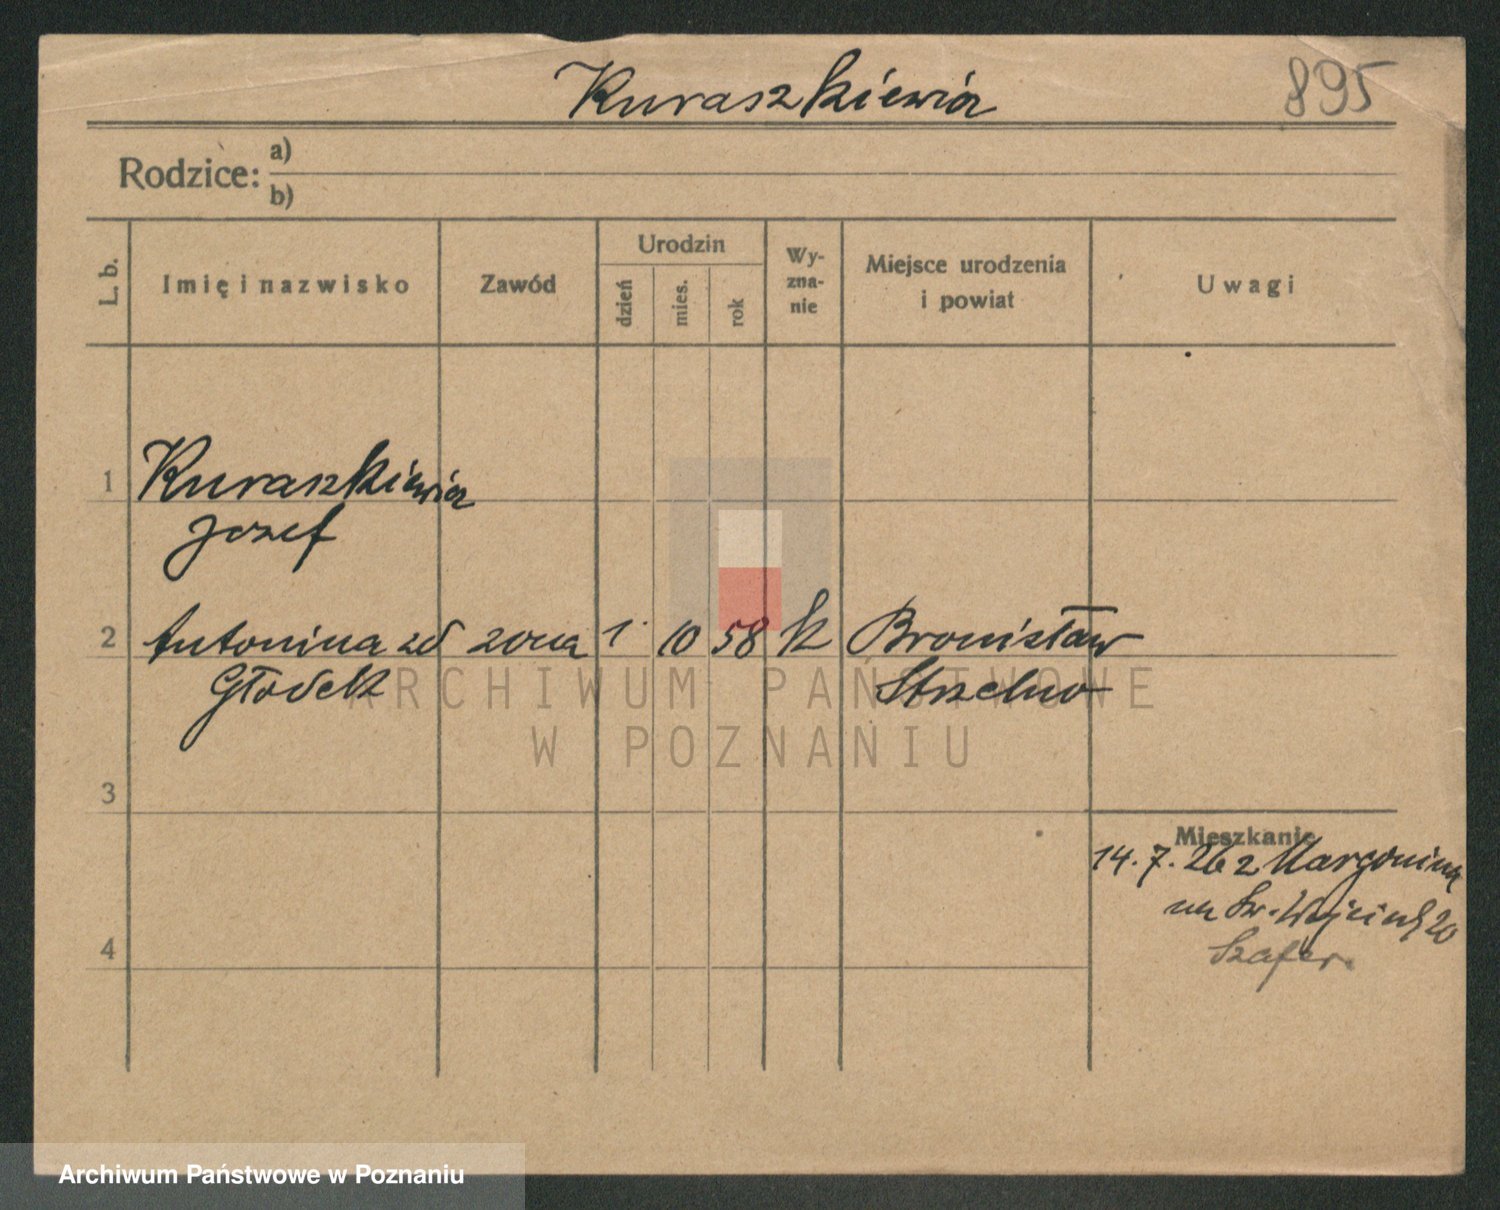 Kuraszkiewicz
895
Rodzice:
a)
b)
L. b.
Imię i nazwisko
Zawód
Urodzin
dzień
mies.
rok
Wy-
zna-
nie
Miejsce urodzenia
i powiat
Uwagi
1
Kuraszkiewicz
Jozef
2
Antonina zd
Głodek
zona
1
10
58
k
Bronisław
Strzelno
3
4
Mieszkanie
14. 7. 26 z Margonina
na Św. Wojciech 20
Szafer.
ARCHIWUM PAŃSTWOWE
W POZNANIU
Archiwum Państwowe w Poznaniu